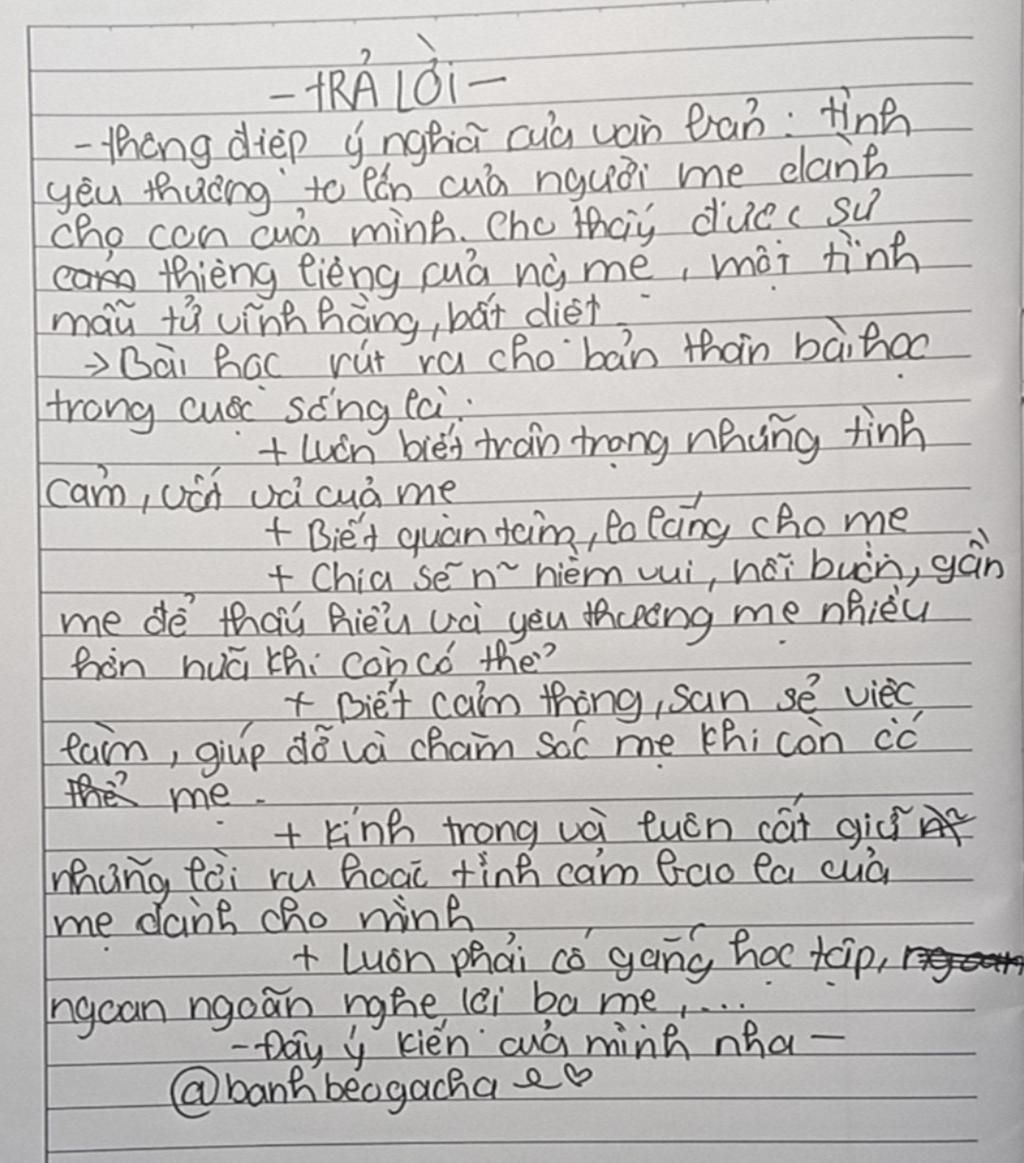 - TRẢ LỜI -
- thông điệp ý nghĩa của văn bản : tình
yêu thương to lớn của người mẹ dành
cho con của mình. Cho thấy được sự
cảm thiêng liêng của ng mẹ, một tình
mẫu tử vĩnh hằng, bất diệt.
→ Bài học rút ra cho bản thân bài học
trong cuộc sống là :
+ Luôn biết trân trọng những tình
cảm, vất vả của mẹ
+ Biết quan tâm, lo lắng cho mẹ
+ Chia sẻ n~ niềm vui, nỗi buồn, gần
mẹ để thấu hiểu và yêu thương mẹ nhiều
hơn nữa khi còn có thể?
+ Biết cảm thông, san sẻ việc
làm, giúp đỡ và chăm sóc mẹ khi còn có
thể mẹ.
+ Kính trọng và luôn cất giữ
những lời ru hoặc tình cảm bao la của
mẹ dành cho mình
+ Luôn phải cố gắng học tập,
ngoan ngoãn nghe lời ba mẹ,....
- Đây ý kiến của mình nha -
@banhbeogacha ♡